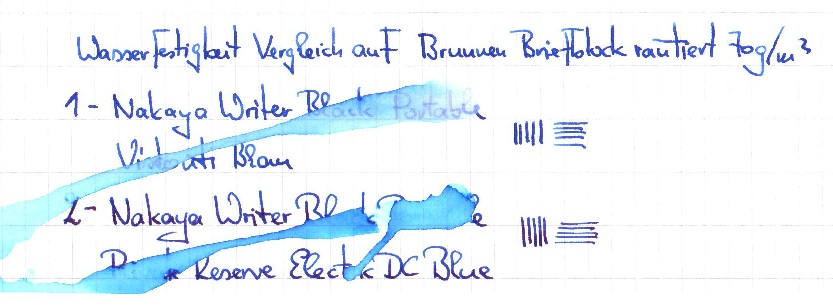 Wasserfestigkeit Vergleich auf Brunnen Briefblock rautiert 70g/m²
1- Nakaya Writer Black Portable
Visconti Blau
2- Nakaya Writer Black
Reserve Electric DC Blue